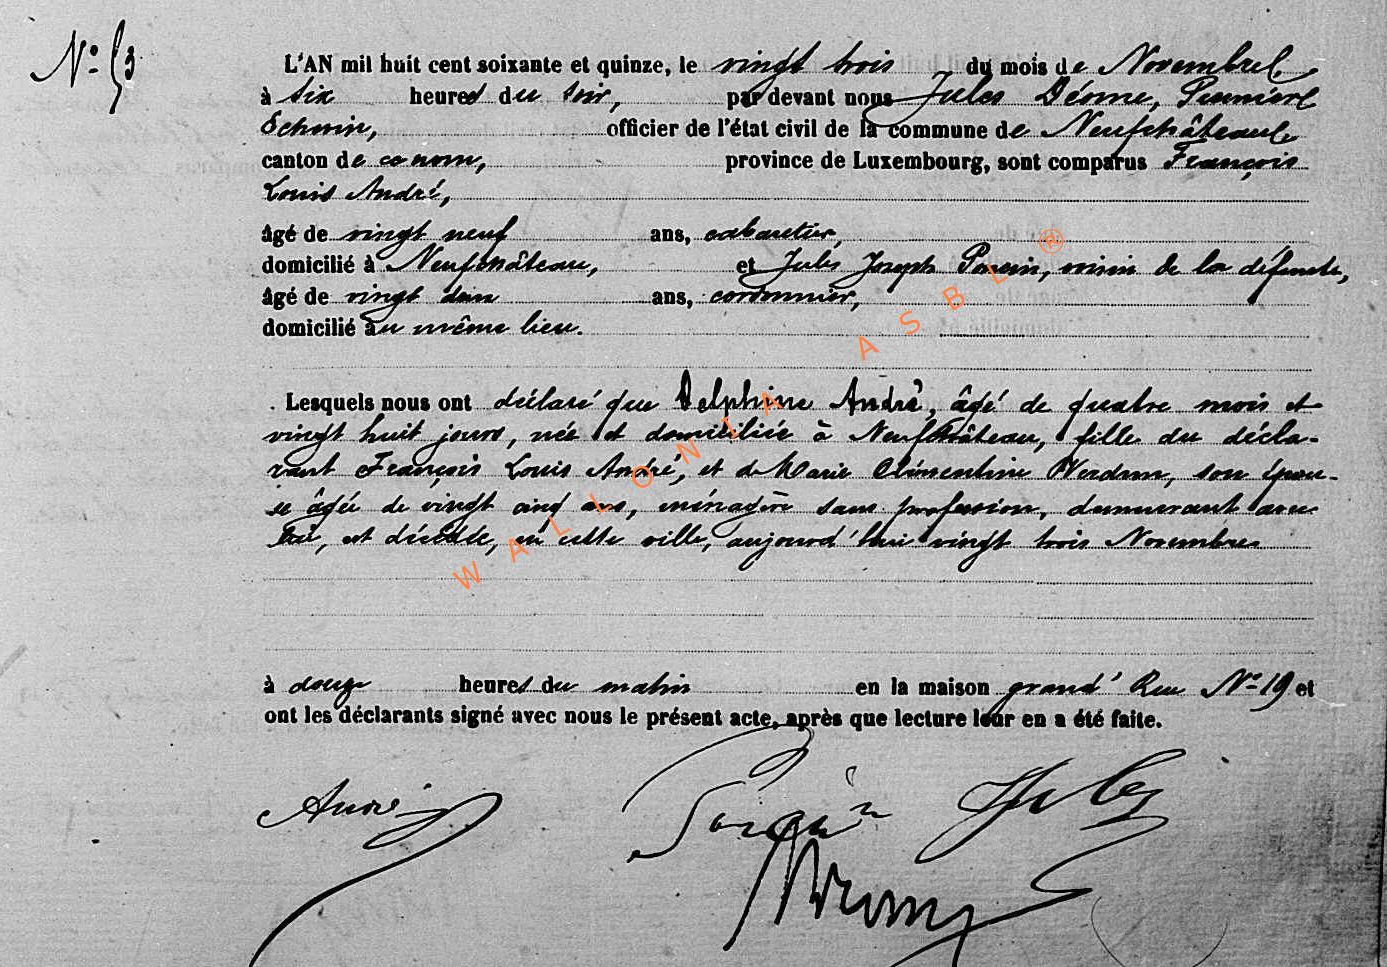 N° 53
L'AN mil huit cent soixante et quinze, le vingt trois du mois de Novembre
à six heures du soir, par devant nous Jules Déome, Premier
Echevin, officier de l'état civil de la commune de Neufchâteau
canton de ce nom, province de Luxembourg, sont comparus François
Louis André,
âgé de vingt neuf ans, cabaretier,
domicilié à Neufchâteau, et Jules Joseph voisin de la défunte,
âgé de vingt deux ans, cordonnier,
domicilié au même lieu.
Lesquels nous ont déclaré que Delphine André, âgé de quatre mois et
vingt huit jours, née et domiciliée à Neufchâteau, fille du décla-
rant François Louis André, et de Marie Clémentine son épou-
se âgée de vingt cinq ans, ménagère sans profession, demeurant avec
lui, est décédée, en cette ville, aujourd'hui vingt trois Novembre
à douze heures du matin en la maison grand' Rue N° 19 et
ont les déclarants signé avec nous le présent acte, après que lecture leur en a été faite.
André Jules
WALLONIA ASBL ®